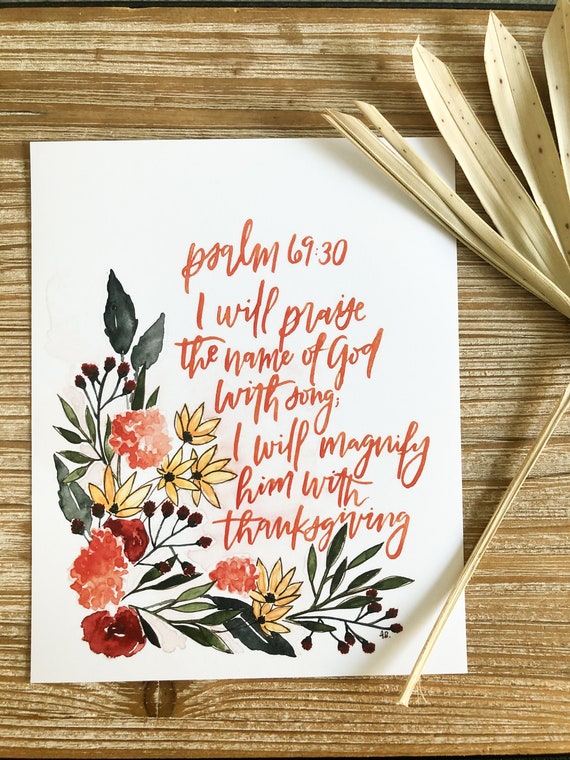 psalm 69:30
I will praise
the name of God
with song;
I will magnify
him with
thanksgiving